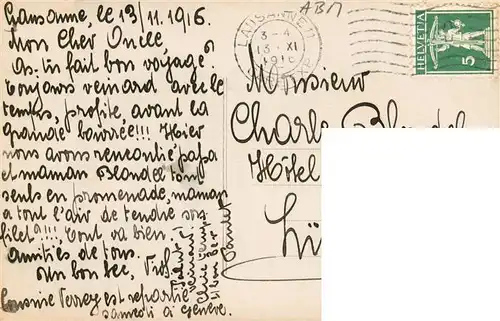 Lausanne, le 13/11.1916.
Mon Cher Oncle,
As-tu fait bon voyage?
Toujours veinard avec le
temps, profite, avant la
grande bourrée!!! Hier
nous avons rencontré papa
et maman Blondel tout
seuls en promenade, maman
a tout l'air de tendre son
filet?!!!, Tout va bien.
Amitiés de tous.
Un bon bec,
Cousine Verrey est repartie
samedi à Genève.
ABM
LAUSANNE 1
3-4
13. XI
1916
HELVETIA
5
Monsieur
Charles Blondel
Hôtel